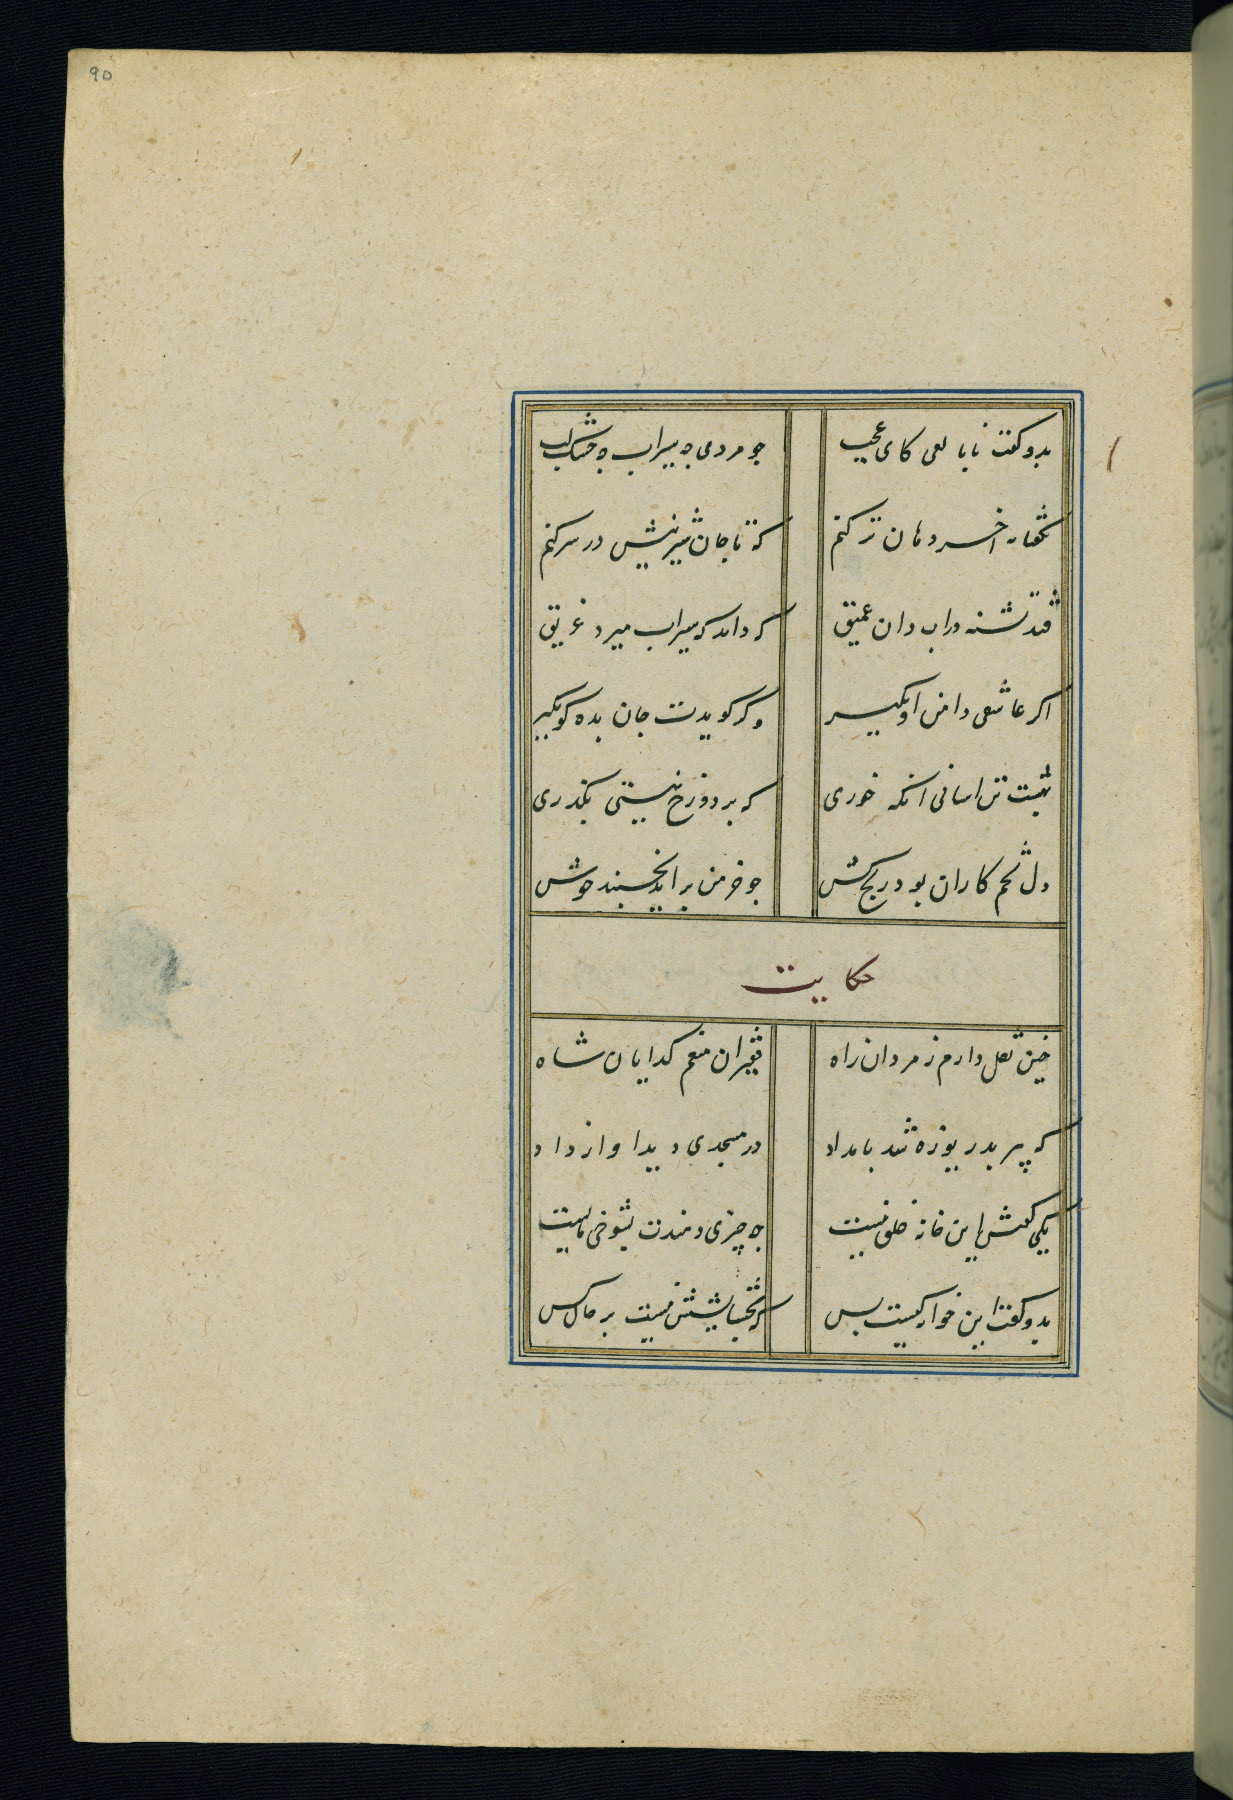 90
بدو گفت نابالغی کای عجیب چو مردی چه سیراب چه خشک لب
بگفتا نه اخر دهان تر کنم که تا جان شیرینیش در سر کنم
فتد تشنه در اب دان عمیق که داند که سیراب میرد غریق
اکر عاشقی دامن او بگیر وگر گویدت جان بده گو بگیر
بهشت تن اسانی انگه خوری که بر دوزخ نیستی بگذری
دل تخم کاران بود رنج کش چو خرمن براید بخسبند خوش
حکایت
چنین نقل دارم ز مردان راه فقیران منعم گدایان شاه
که پیر بدریوزه شد بامداد در مسجدی دید و اواز داد
یکی گفتش این خانه خلق نیست که چیزی دهندت بشوخی مایست
بدو گفت این خوانه کیست پس که بخشایشش نیست بر حال کس